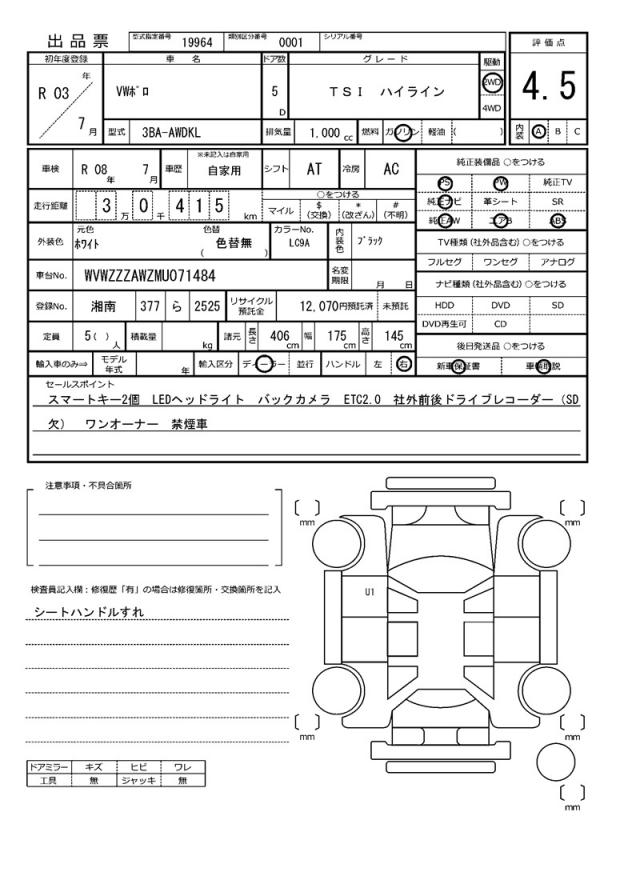 出品票 型式指定番号 19964 類別区分番号 0001 シリアル番号
初年度登録 車名 ドア数 グレード 駆動 評価点
R 03 年 7 月 VWポロ 5 D TSI ハイライン 2WD 4WD 4.5
型式 3BA-AWDKL 排気量 1.000 cc 燃料 ガソリン 軽油 ( ) 内装 A B C
車検 R 08 年 7 月 車歴 ※未記入は自家用 自家用 シフト AT 冷房 AC 純正装備品 ○をつける
PS PW 純正TV
走行距離 3 万 0 千 4 1 5 km ○をつける
マイル $ (交換) * (改ざん) # (不明)
純正ナビ 革シート SR
純正AW エアB ABS
外装色 元色 ホワイト 色替 ( 色替無 ) カラーNo. LC9A 内装色 ブラック
TV種類 (社外品含む) ○をつける
フルセグ ワンセグ アナログ
車台No. WVWZZZAWZMU071484 名変期限 月 日
ナビ種類 (社外品含む) ○をつける
登録No. 湘南 377 ら 2525 リサイクル預託金 12,070円預託済 未預託
HDD DVD SD
DVD再生可 CD
定員 5( ) 人 積載量 kg 諸元 長さ 406 cm 幅 175 cm 高さ 145 cm
後日発送品 ○をつける
輸入車のみ⇒ モデル年式 年 輸入区分 ディーラー 並行 ハンドル 左 右
新車保証書 車輌取説
セールスポイント
スマートキー2個 LEDヘッドライト バックカメラ ETC2.0 社外前後ドライブレコーダー (SD
欠) ワンオーナー 禁煙車
注意事項・不具合箇所
mm mm
検査員記入欄：修復歴「有」の場合は修復箇所・交換箇所を記入
U1
シートハンドルすれ
mm mm
ドアミラー キズ ヒビ ワレ
工具 無 ジャッキ 無
mm